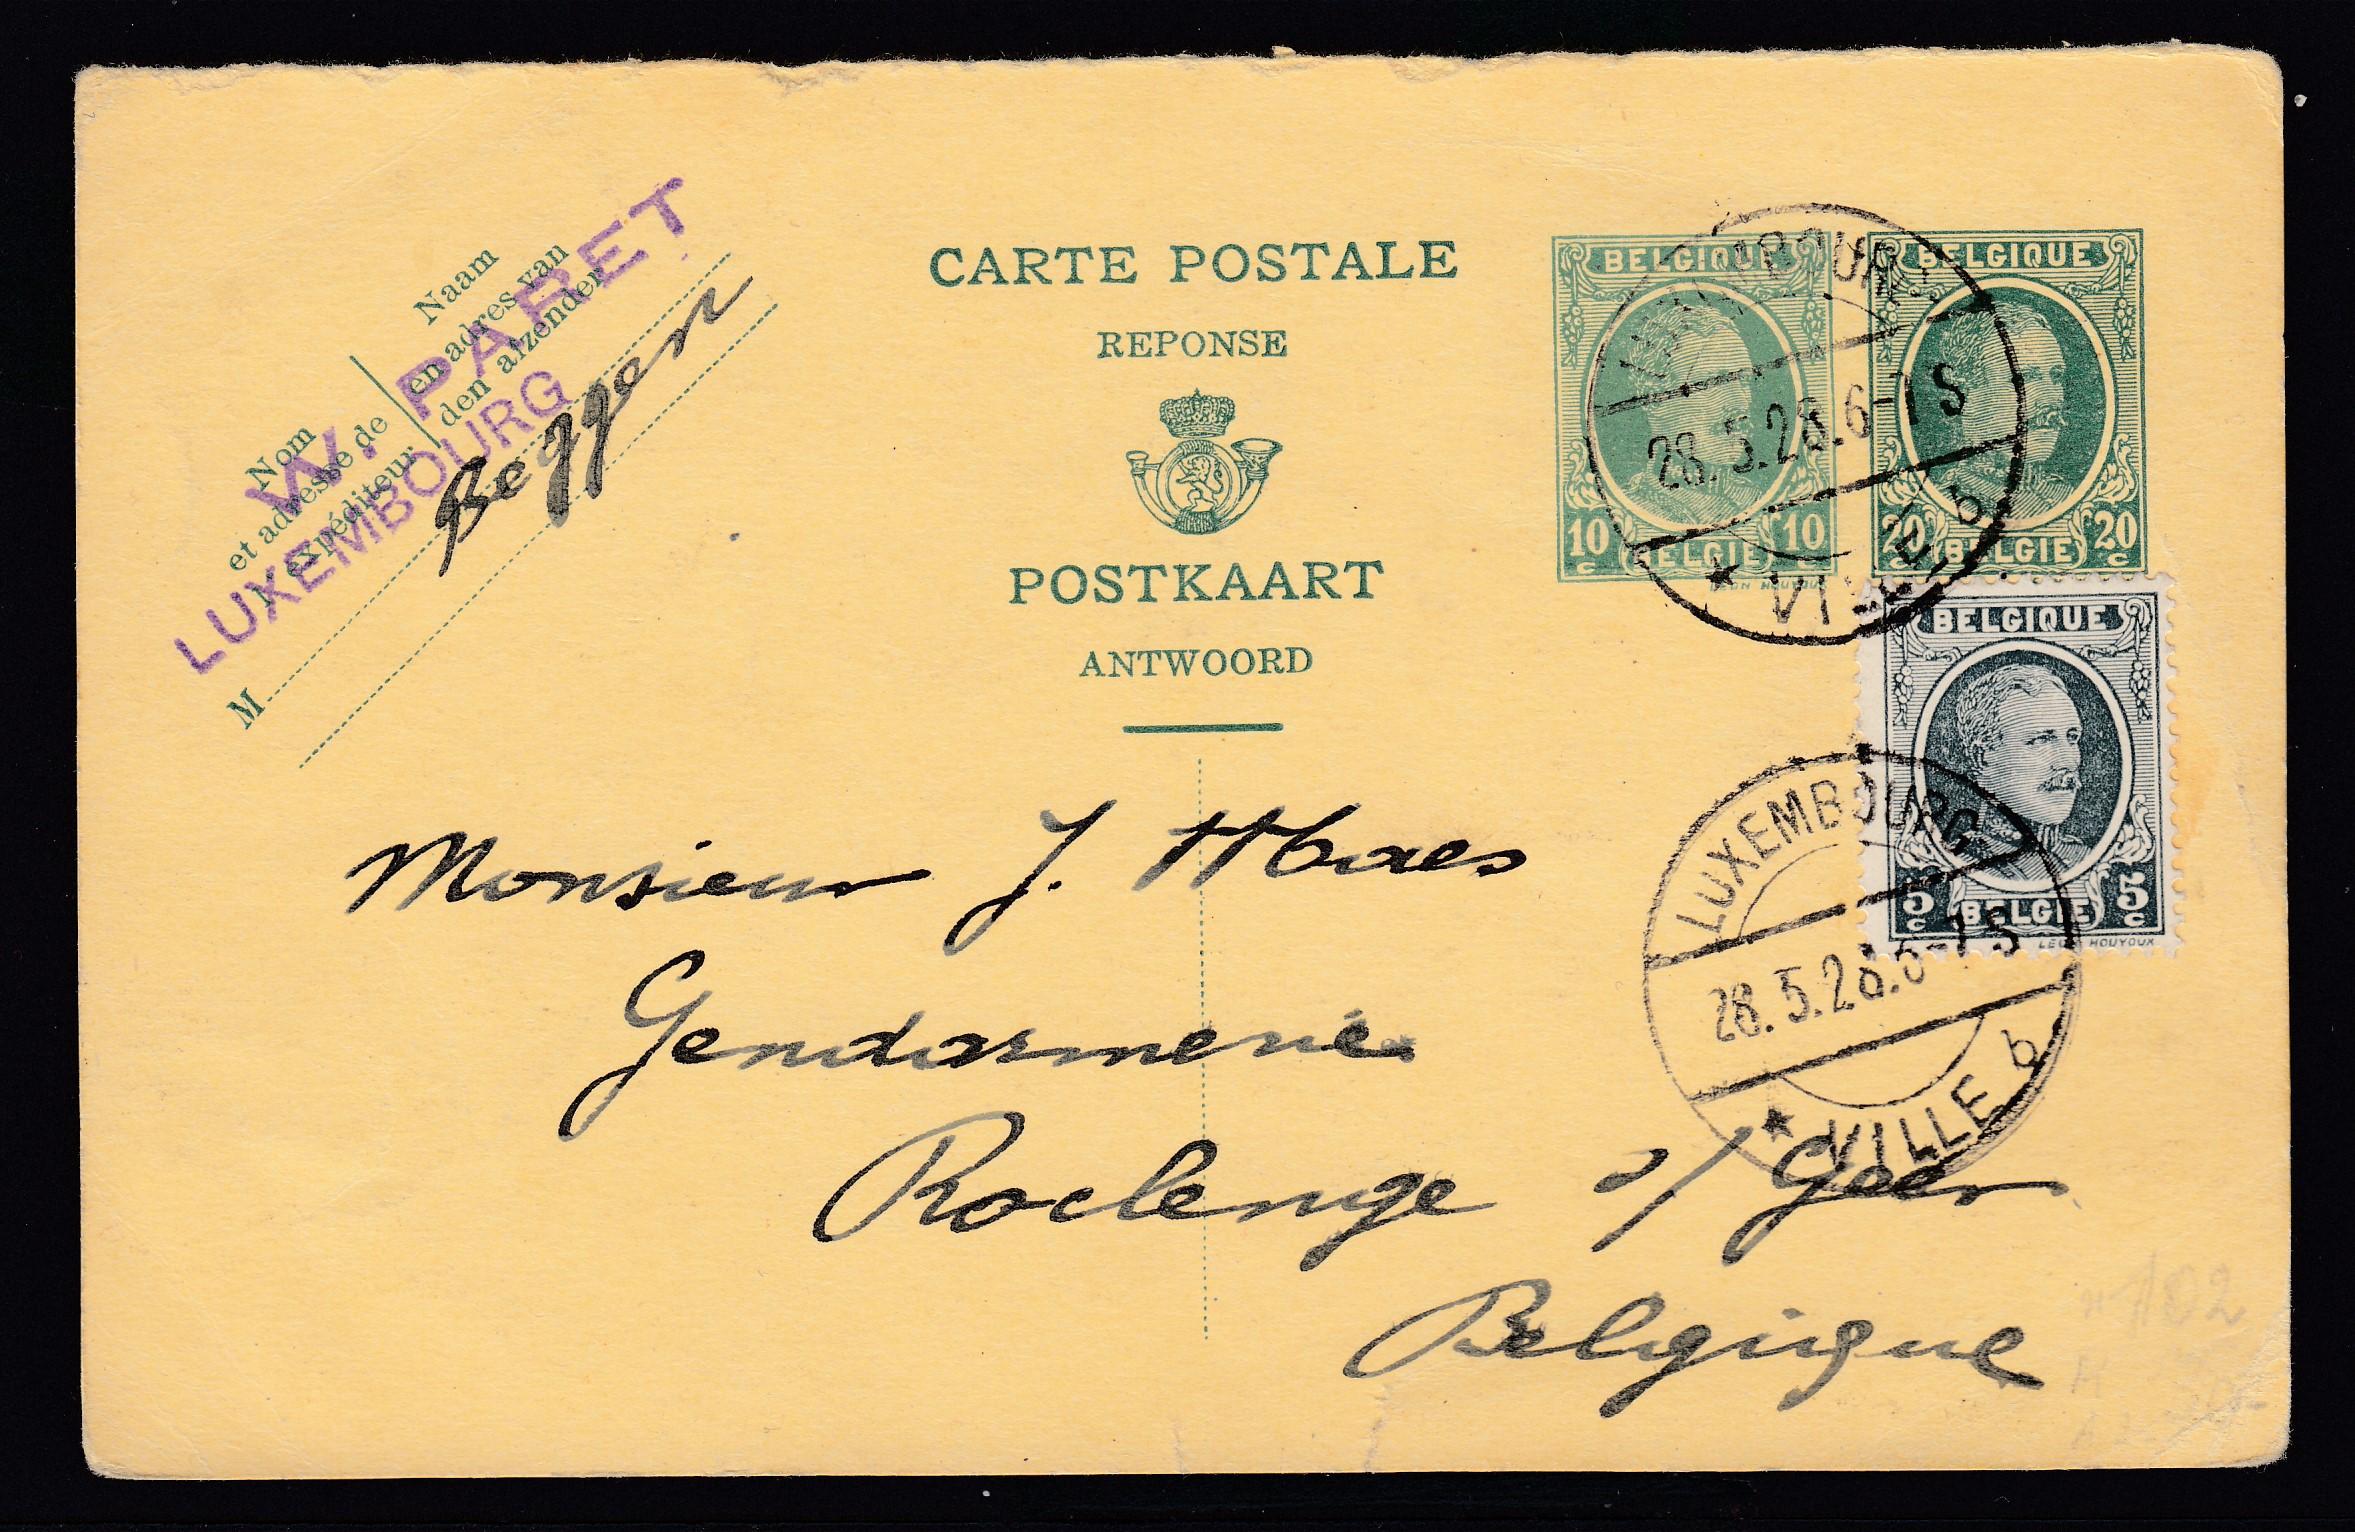 Naam
en adres van
den afzender
Nom
et adresse de
l'expéditeur
W. PARET
LUXEMBOURG
Beggen
M
CARTE POSTALE
REPONSE
POSTKAART
ANTWOORD
BELGIQUE
10 c BELGIE 10 c
LEON HOUYOUX
BELGIQUE
20 c BELGIE 20 c
LUXEMBOURG
28.5.28.6-7 S
★ VILLE b
BELGIQUE
5 c BELGIE 5 c
LEON HOUYOUX
LUXEMBOURG
28.5.28.6-7 S
★ VILLE b
Monsieur J. Haes
Gendarmerie
Roclenge s/ Geer
Belgique